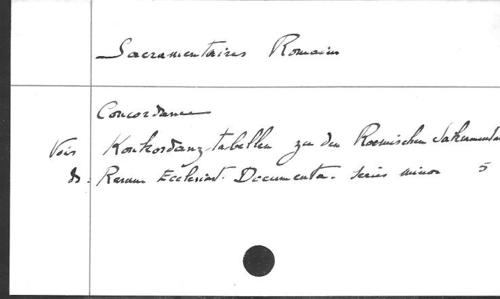 Sacramentaires Romains
Concordance
Voir Konkordanztabellen zu den Roemischen Sakramentar
ds. Rerum Ecclesiast. Documenta. Series minor 5